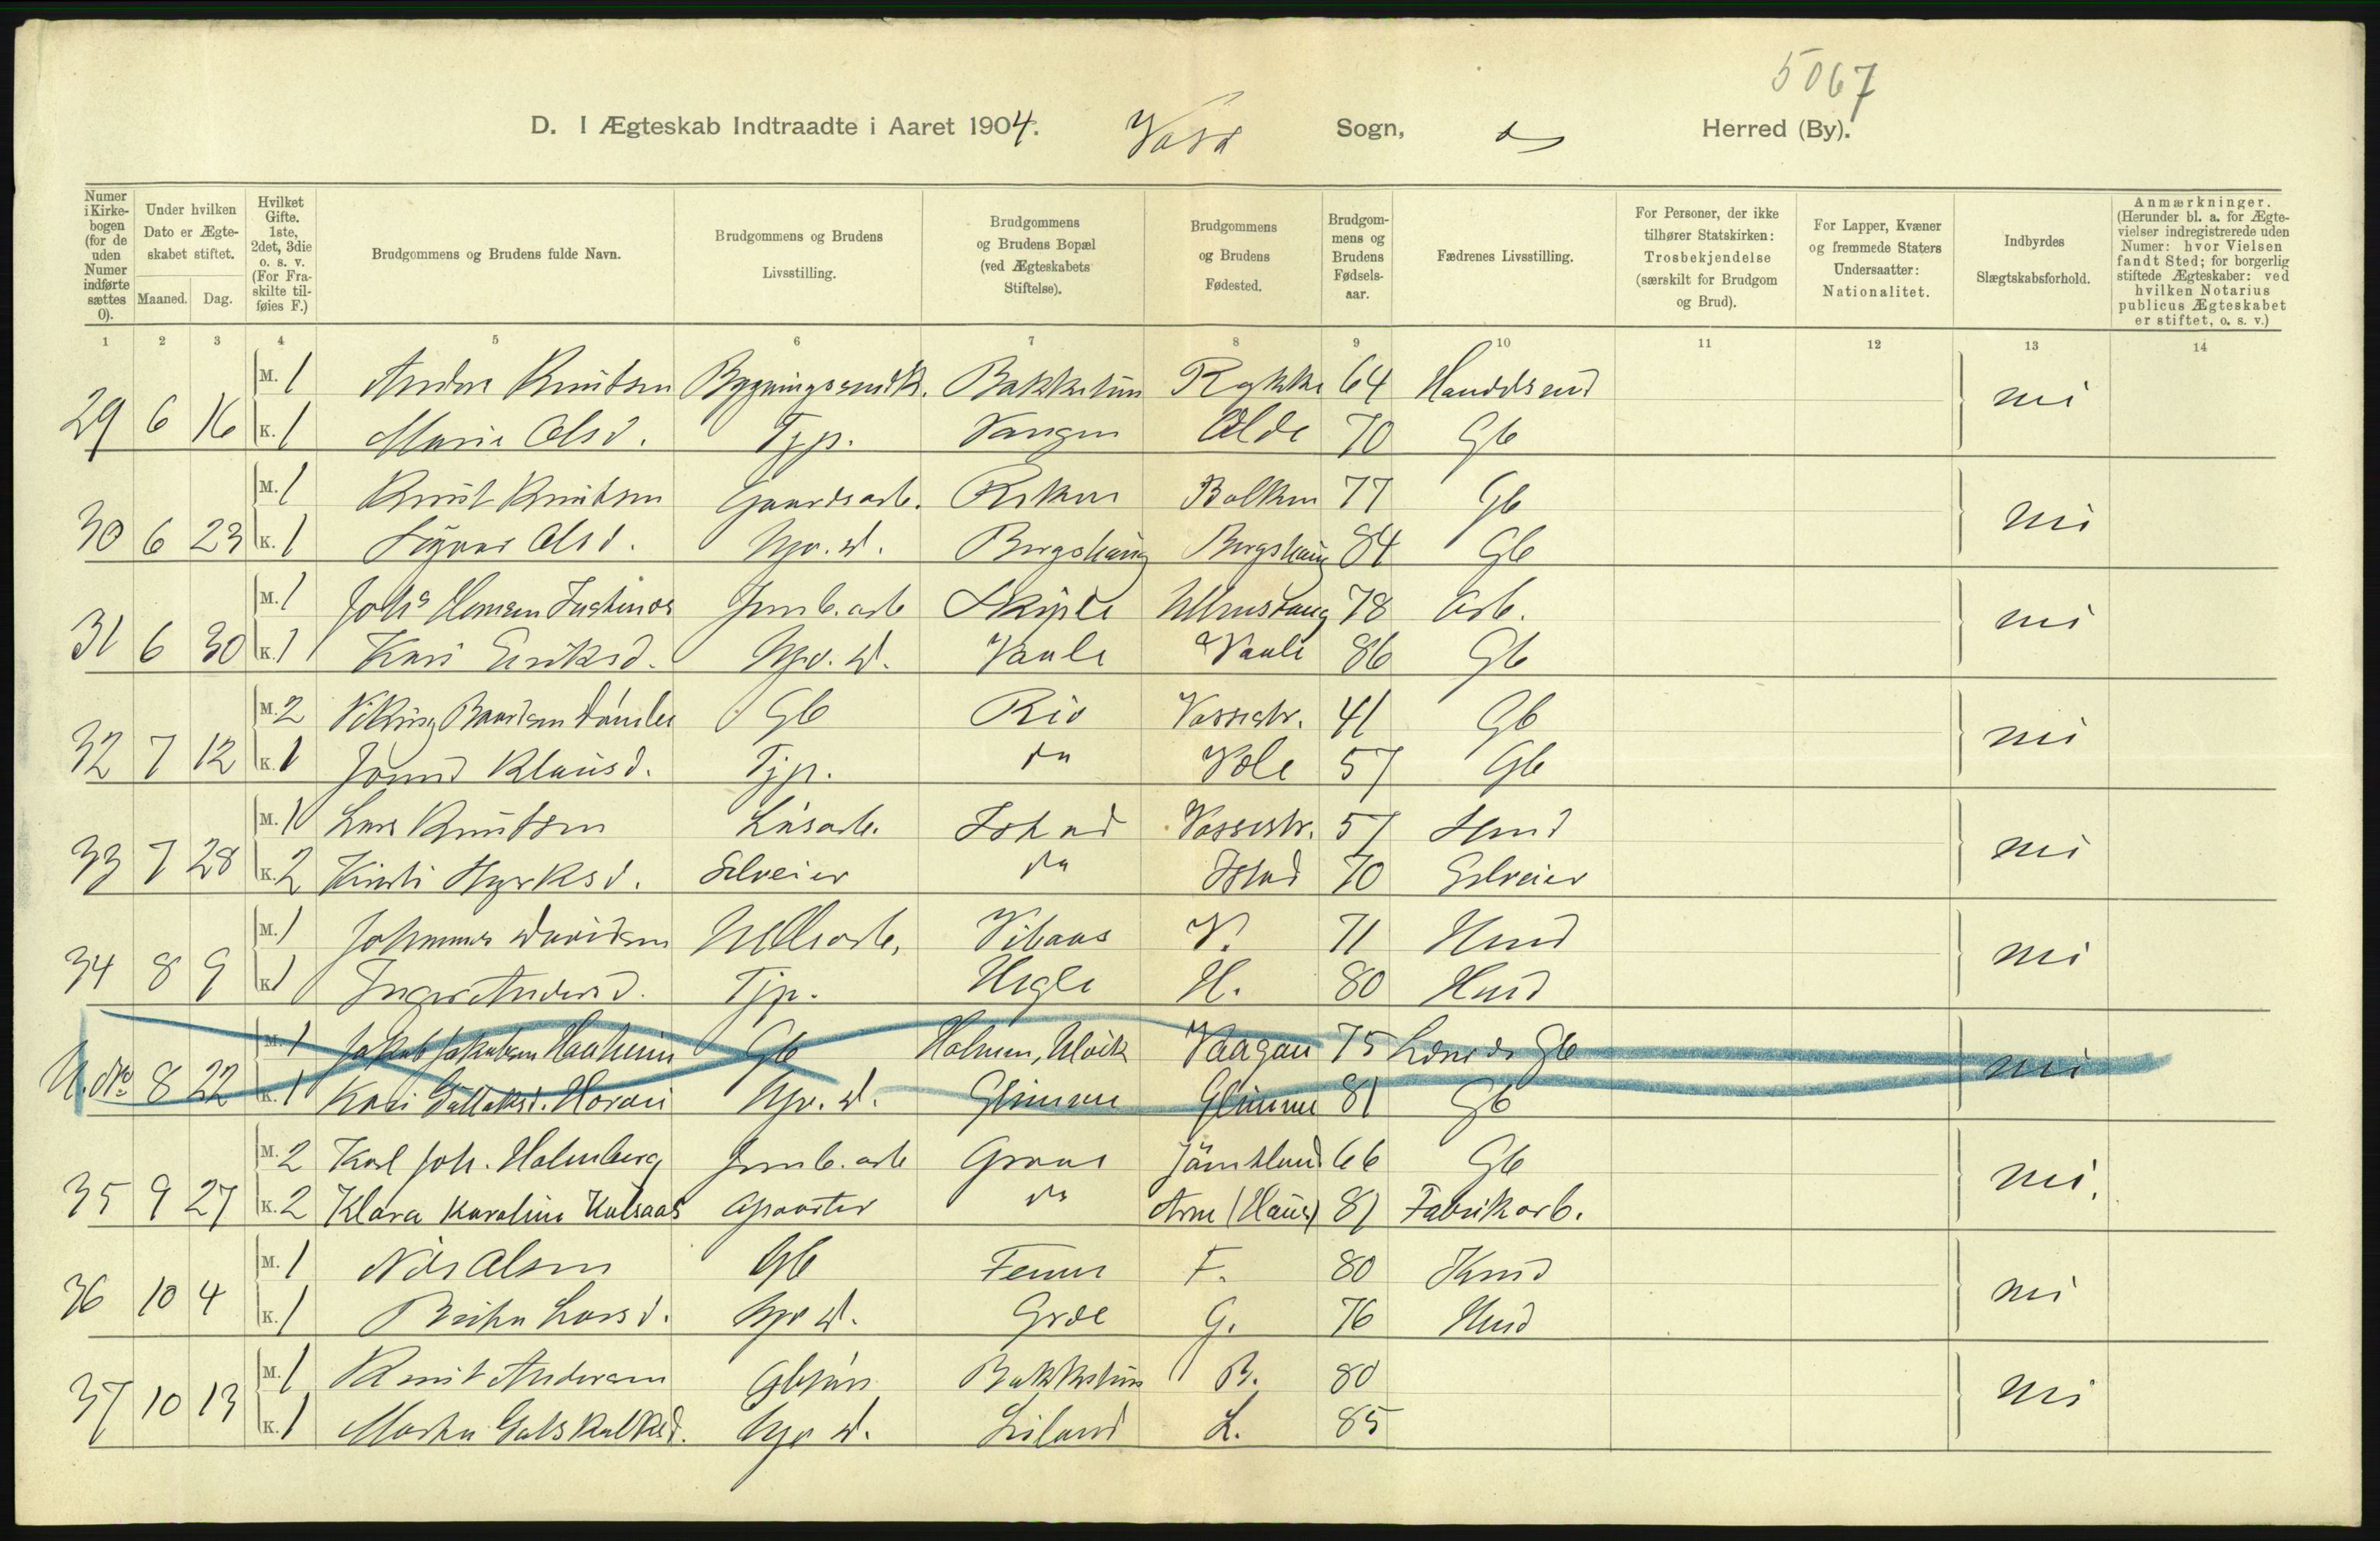 5067
D. I Ægteskab Indtraadte i Aaret 1904. Voss Sogn, Herred (By).
Numer i Kirkebogen (for de uden Numer indførte sættes 0).
Under hvilken Dato er Ægteskabet stiftet.
Maaned. Dag.
Hvilket Gifte. 1ste, 2det, 3die o. s. v. (For Fraskilte tilføies F.)
Brudgommens og Brudens fulde Navn.
Brudgommens og Brudens Livsstilling.
Brudgommens og Brudens Bopæl (ved Ægteskabets Stiftelse).
Brudgommens og Brudens Fødested.
Brudgommens og Brudens Fødselsaar.
Fædrenes Livsstilling.
For Personer, der ikke tilhører Statskirken: Trosbekjendelse (særskilt for Brudgom og Brud).
For Lapper, Kvæner og fremmede Staters Undersaatter: Nationalitet.
Indbyrdes Slægtskabsforhold.
Anmærkninger. (Herunder bl. a. for Ægtevielser indregistrerede uden Numer: hvor Vielsen fandt Sted; for borgerlig stiftede Ægteskaber: ved hvilken Notarius publicus Ægteskabet er stiftet, o. s. v.)
1 2 3 4 5 6 7 8 9 10 11 12 13 14
M. 1 Anders Knutsen Bygningssnedk. Bakketun Rykke 64 Handelsmd
29 6 16 K. 1 Maria Olsd. Tjp. Vangen Olde 70 Gb nei
M. 1 Knut Knutsen Gaardsarb. Rekve Bolken 77 Gb
30 6 23 K. 1 Olsd. Gjv. d. Bergshaug Bergshaug 84 Gb nei
M. 1 Johs Hansen Jernb. arb Skiple 78 Arb.
31 6 30 K. 1 Kari Eriksd. Gjv. d. Vaule Vaule 86 Gb nei
M. 2 Viking Baardsen Gb Rio Vossestr. 41 Gb
32 7 12 K. 1 Klausd. Tjp. do 57 Gb nei
M. 1 Lars Knutsen Løsarb. Istad Vossestr. 57 Hmd
33 7 28 K. 2 Kirsti Styrksd. Selveier do Istad 70 Selveier nei
M. 1 Johannes Davidsen Vibaas V. 71 Hmd
34 8 9 K. 1 Inger Andersd. Tjp. Hegle H. 80 Hmd nei
M. 1 Jakob Jakobsen Haaheim Gb Holmen, Ulvik Vaagan 75 Gb
U. No 8 22 K. 1 Kari Horvei Gjv. d. Glimme Glimme 81 Gb nei
M. 2 Karl Joh. Holmberg Jernb. arb Graue Jämtland 66 Gb
35 9 27 K. 2 Klara Karoline Kulsaas Opvarter do Arne (Haus) 81 Fabrikarb. nei.
M. 1 Nils Olsen Gb Fenne F. 80 Hmd
36 10 4 K. 1 Brita Larsd. Gjv d. Groe G. 76 Hmd nei
M. 1 Knut Andersen Gbsøn Bakketun B. 80
37 10 13 K. 1 Marta Gjv d. Liland L. 85 nei